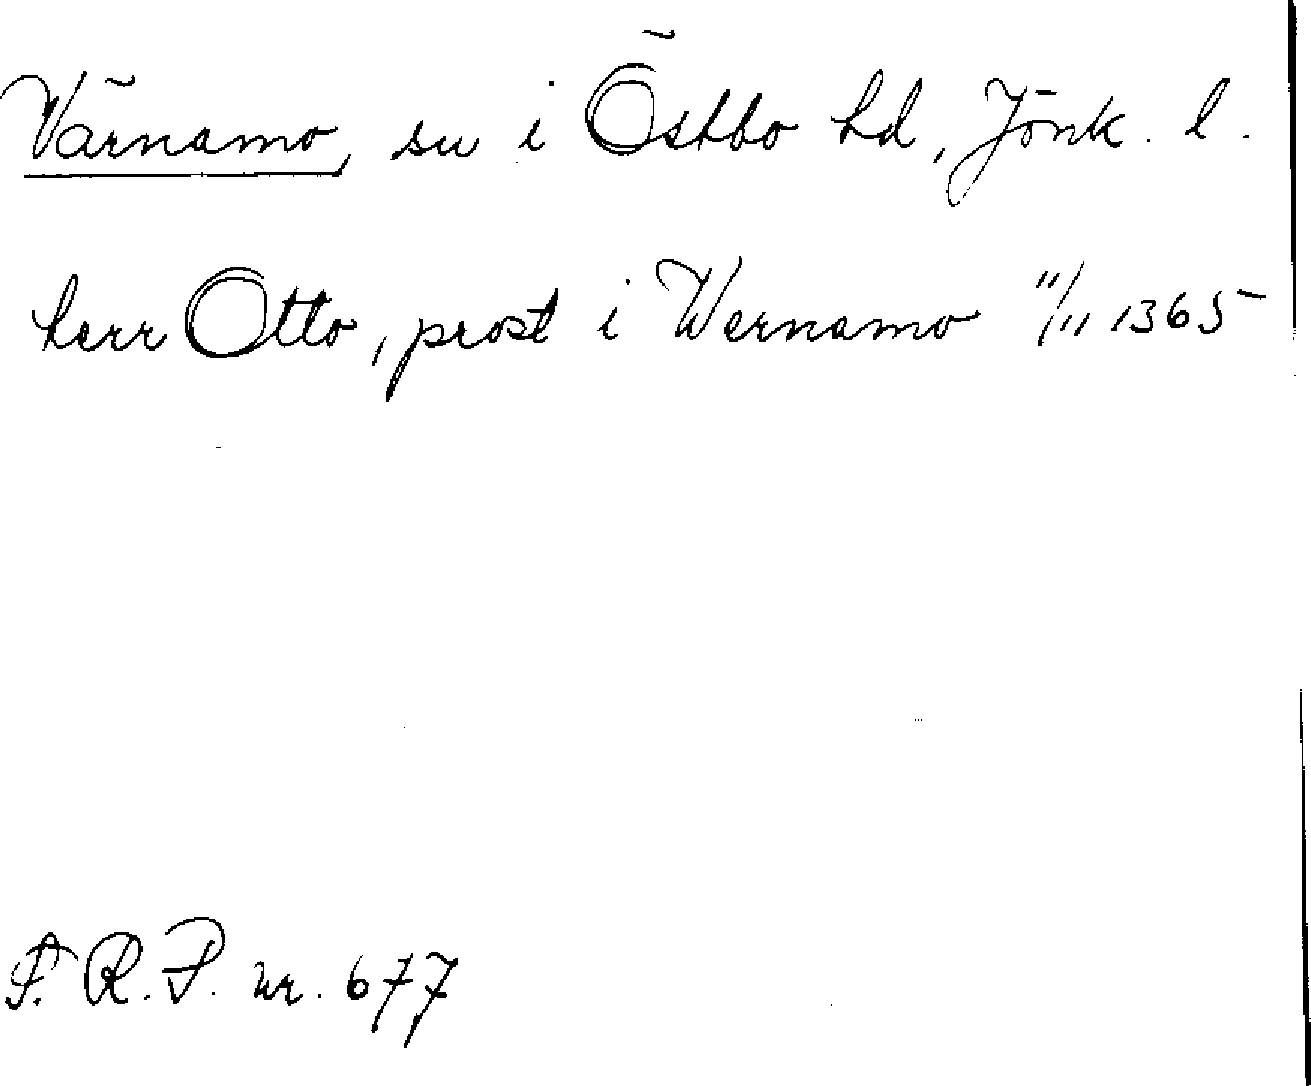 Värnamo, sn i Östbo hd, Jönk. l.
herr Otto, prost i Wernamo 11/11 1365
S. R. P. nr. 677